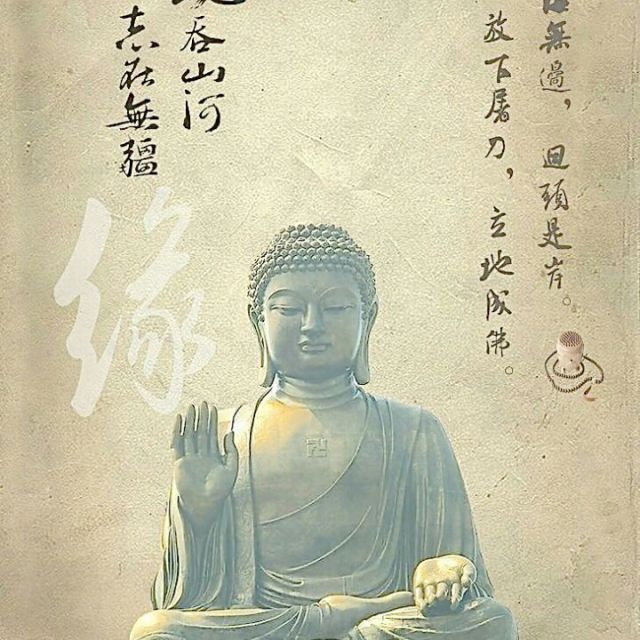 海無邊，回頭是岸。
放下屠刀，立地成佛。
吞山河
志在無疆
缘
卍